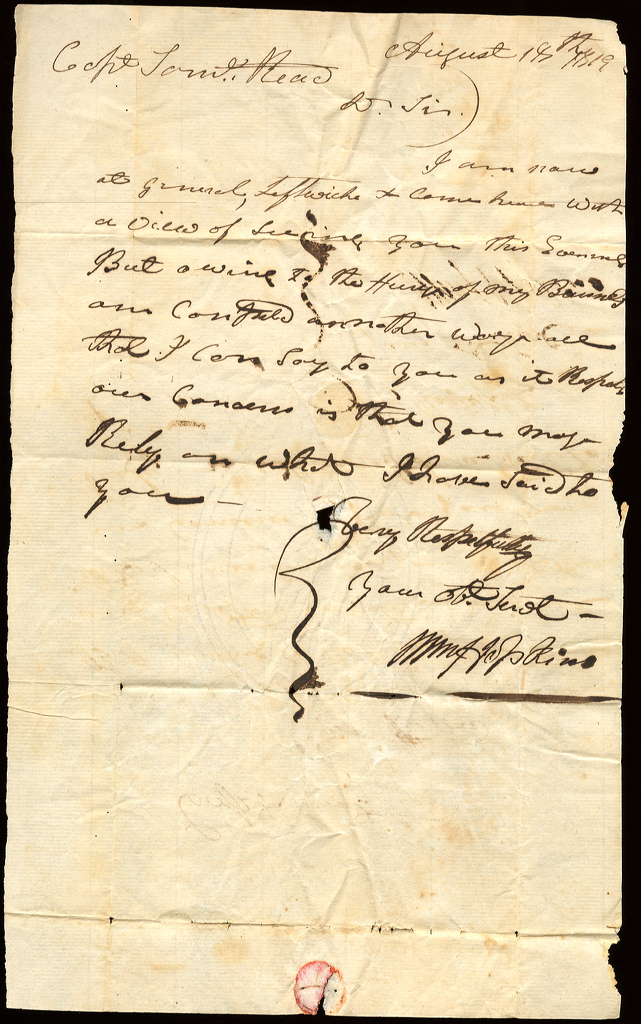 August 18th 1819
Capt Saml. Read
Dr. Sir.
I am now
at general, Leftwichs & Came here with
a View of Seeing you this Evening
But owing to the Hurry of my Business
am Compeld annother waye all
that I Can Say to you as it Respects
our Concern is that you may
Rely on what I have Said to
you —
Very Respectfully
your Obt. Servt —
Wm Hopkins